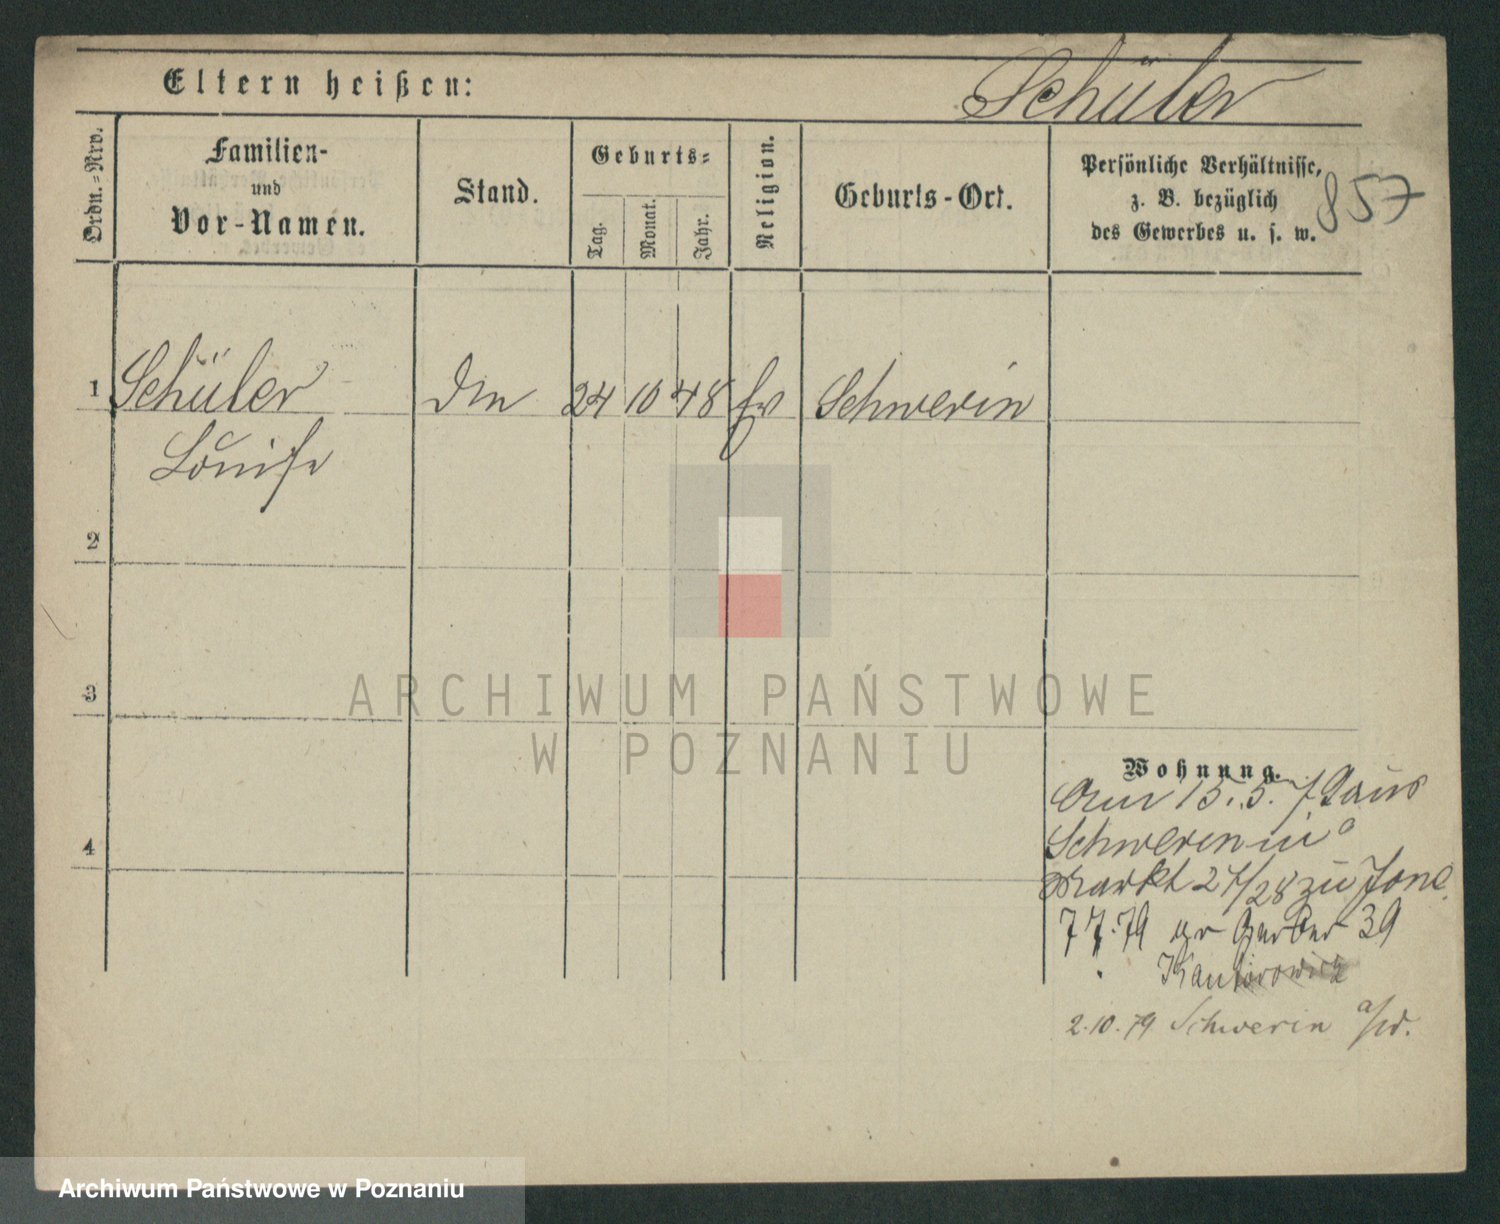 Eltern heißen:
Schüler
Ordn.-Nro.
Familien-
und
Vor-Namen.
Stand.
Geburts-
Tag.
Monat.
Jahr.
Religion.
Geburts-Ort.
Persönliche Verhältnisse,
z. B. bezüglich
des Gewerbes u. s. w.
857
1 Schüler 24 10 48 Ev Schwerin
Louise
2
3
4
ARCHIWUM PAŃSTWOWE
W POZNANIU
Wohnung.
15.5. 79 aus
Schwerin
Markt 27/28 zu
7 7. 79 gr Gerber 39
Kantorowicz
2.10.79 Schwerin a/W.
Archiwum Państwowe w Poznaniu